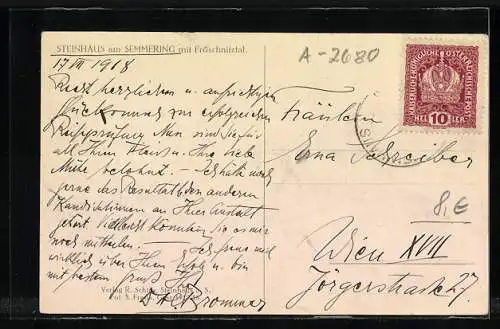 STEINHAUS am SEMMERING mit Fröschnitztal.
A-2680
17 VII 1918
KAISERLICHE KÖNIGLICHE ÖSTERREICHISCHE POST
HELLER 10
Recht herzlichen u. aufrichtigen
Glückwunsch zur erfolgreichen
Reifeprüfung Nun sind Sie für
all Ihren Fleiss u. Ihre viele
Mühe belohnt. Ich hätte auch
gerne das Resultat der anderen
Kandidatinnen an Ihrer Anstalt
gehört. Vielleicht könnten Sie es mir
noch mitteilen. Ich freue mich
wirklich über Ihren Erfolg u. bin
mit bestem Gruß
Fräulein
Erna Schreiber
8,€
Wien XVII
Jörgerstraße 27.
Verlag R.